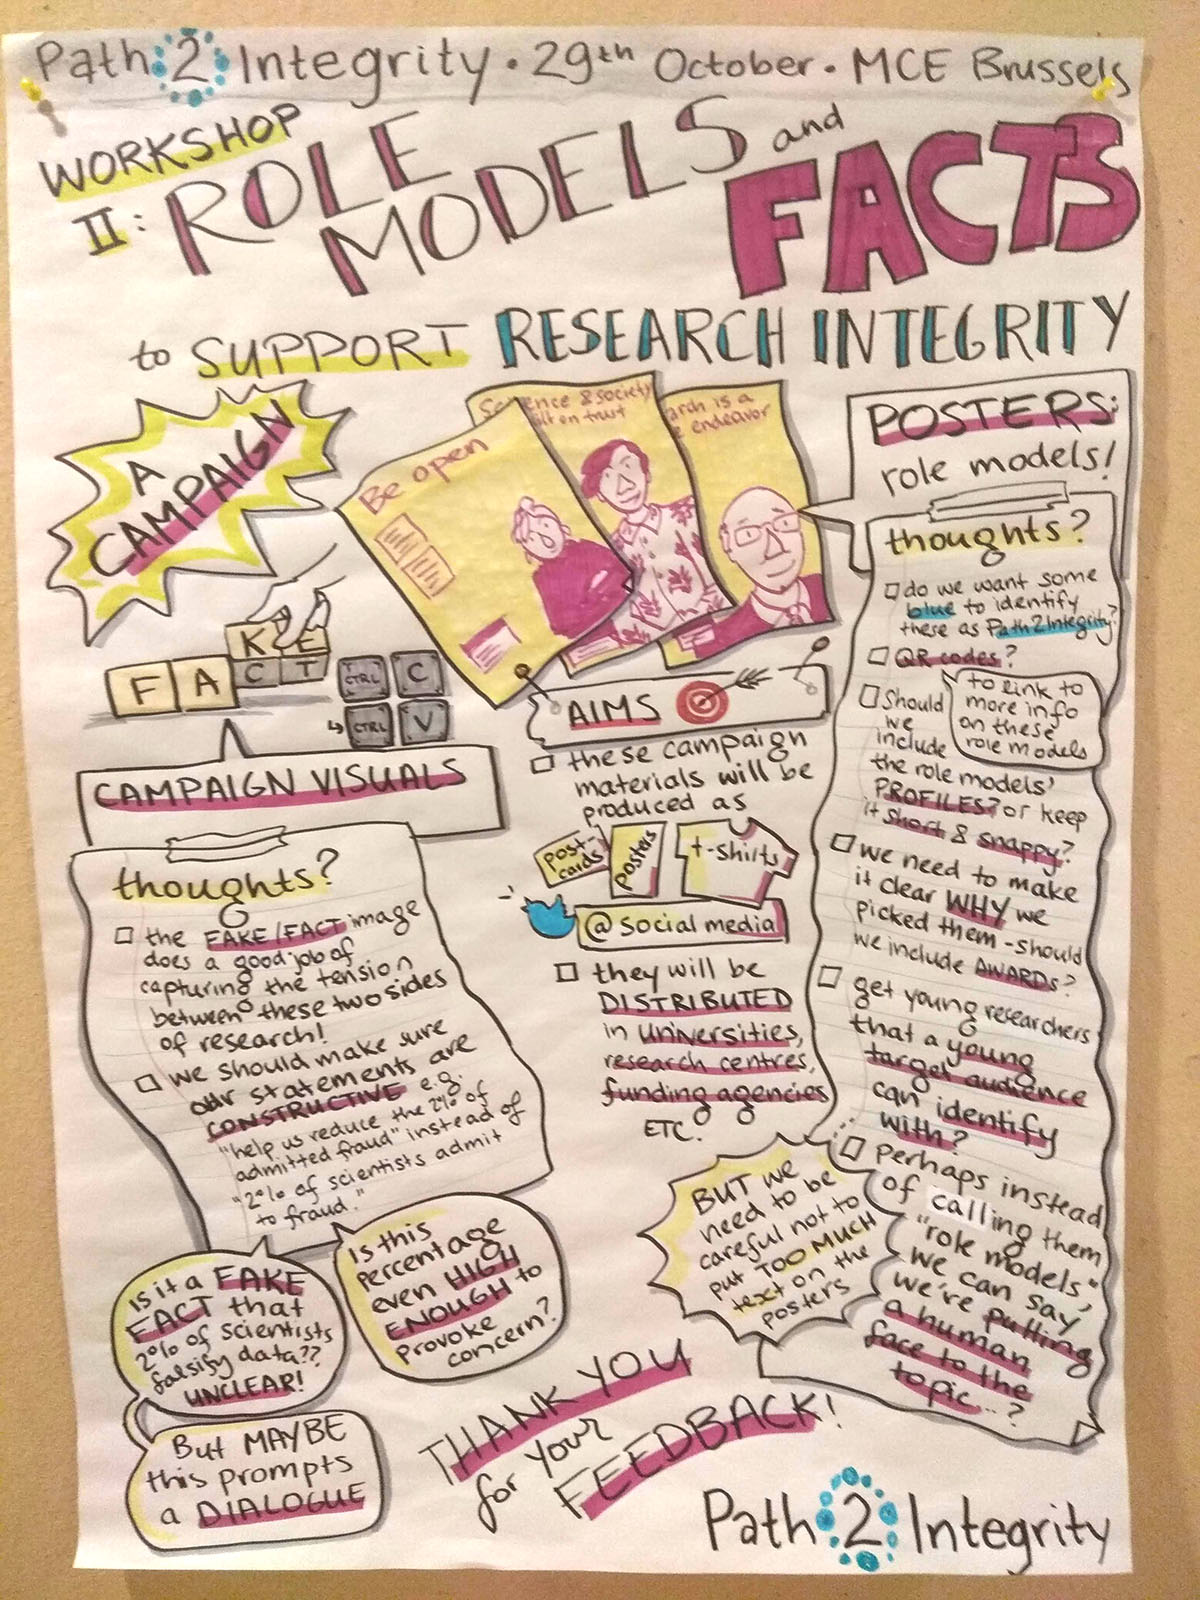 Path 2 Integrity · 29th October · MCE Brussels
WORKSHOP
II: ROLE MODELS and FACTS
to SUPPORT RESEARCH INTEGRITY
A
CAMPAIGN
Be open
ence & society
ilt on trust
arch is a
endeavor
K E
F A C T
CTRL C
CTRL V
CAMPAIGN VISUALS
thoughts?
the FAKE/FACT image
does a good job of
capturing the tension
between these two sides
of research!
we should make sure
our statements are
CONSTRUCTIVE e.g.
"help us reduce the 2% of
admitted fraud" instead of
"2% of scientists admit
to fraud."
Is it a FAKE
FACT that
2% of scientists
falsify data??
UNCLEAR!
Is this
percentage
even HIGH
ENOUGH to
provoke
concern?
But MAYBE
this prompts
a DIALOGUE
AIMS
these campaign
materials will be
produced as
post-
cards
posters
t-shirts
@ social media
they will be
DISTRIBUTED
in universities,
research centres,
funding agencies
ETC.
POSTERS:
role models!
thoughts?
do we want some
blue to identify
these as Path2Integrity?
QR codes?
to link to
more info
on these
role models
Should
we
include
the role models'
PROFILES? or keep
it short & snappy?
we need to make
it clear WHY we
picked them - should
we include AWARDs?
get young researchers
that a young
target audience
can identify
with?
perhaps instead
of calling them
"role models",
we can say
we're putting
a human
face to the
topic...?
BUT we
need to be
careful not to
put TOO MUCH
text on the
posters
THANK YOU
for your
FEEDBACK!
Path 2 Integrity